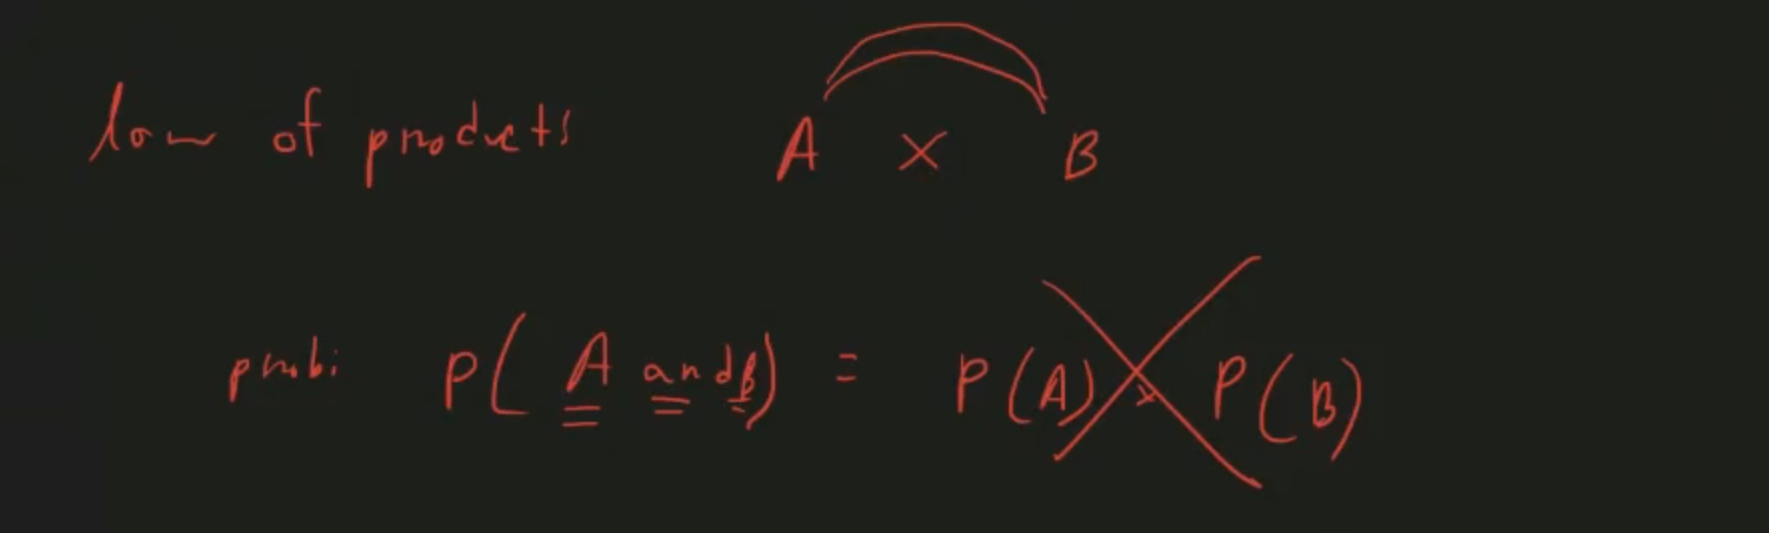 law of products A × B
probi P( A and B) = P(A) × P(B)